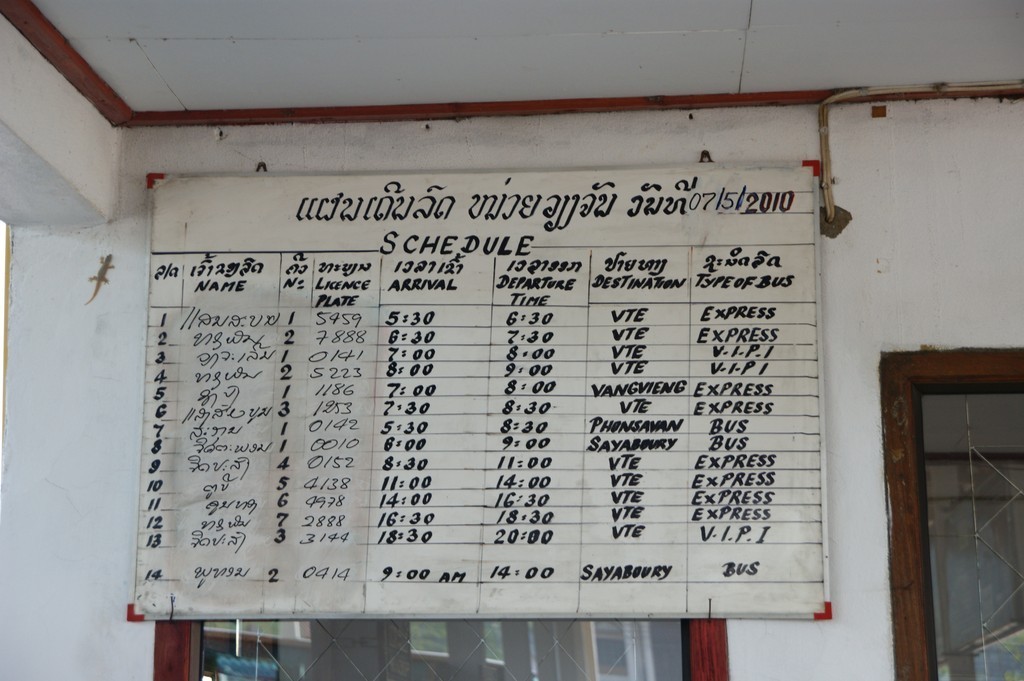 ແຜນເດີນລົດ ໜ່ວຍວຽງຈັນ ວັນທີ 07/5/2010
SCHEDULE
ລ/ດ ເຈົ້າຂອງລົດ ຄິວ ທະບຽນ ເວລາເຂົ້າ ເວລາອອກ ປາຍທາງ ຊະນິດລົດ
NAME Nº LICENCE PLATE ARRIVAL DEPARTURE TIME DESTINATION TYPE OF BUS
1 ແສນສະບາຍ 1 5459 5:30 6:30 VTE EXPRESS
2 2 7888 6:30 7:30 VTE EXPRESS
3 1 0141 7:00 8:00 VTE V.I.P.I
4 2 5223 8:00 9:00 VTE V.I.P.I
5 1 1186 7:00 8:00 VANGVIENG EXPRESS
6 3 1253 7:30 8:30 VTE EXPRESS
7 1 0142 5:30 8:30 PHONSAVAN BUS
8 1 0010 6:00 9:00 SAYABOURY BUS
9 4 0152 8:30 11:00 VTE EXPRESS
10 5 4138 11:00 14:00 VTE EXPRESS
11 6 4978 14:00 16:30 VTE EXPRESS
12 7 2888 16:30 18:30 VTE EXPRESS
13 3 3144 18:30 20:00 VTE V.I.P.I
14 2 0414 9:00 AM 14:00 SAYABOURY BUS